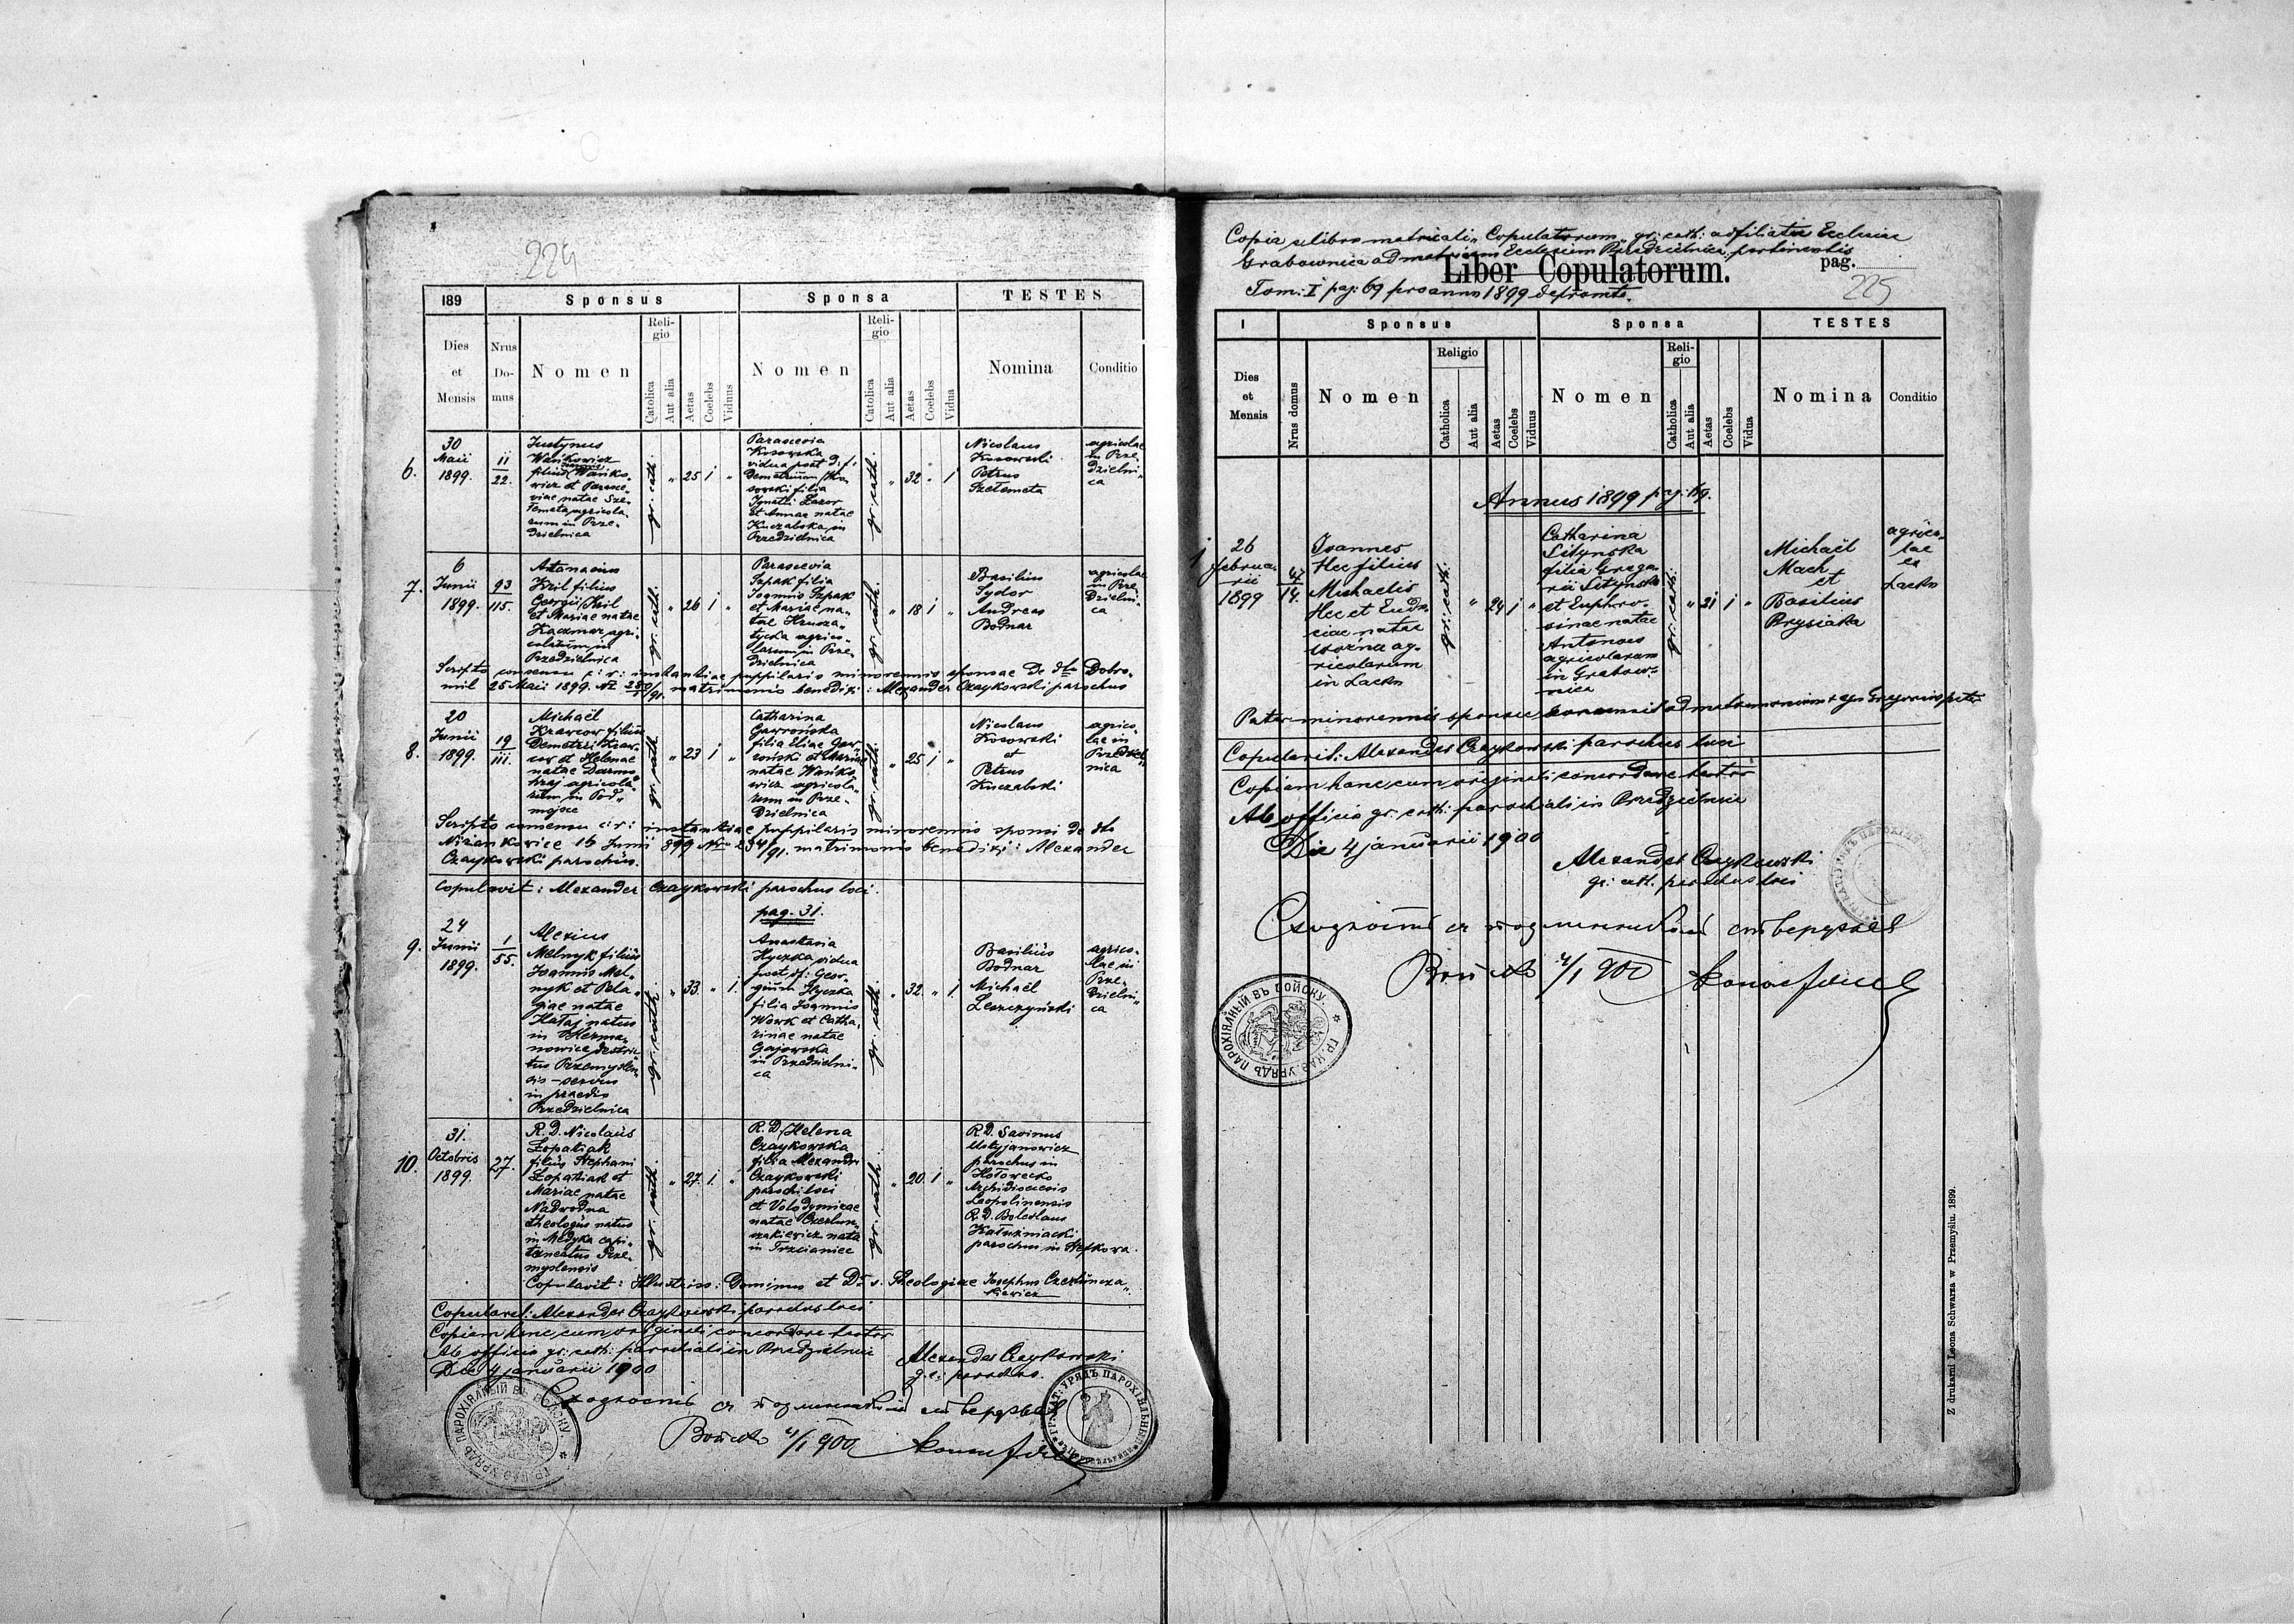 224
189
Sponsus
Sponsa
TESTES
Dies et Mensis
Nrus Domus
Nomen
Religio
Catolica
Aut alia
Aetas
Coelebs
Viduus
Nomen
Religio
Catolica
Aut alia
Aetas
Coelebs
Vidua
Nomina
Conditio
6.
30
Maii
1899.
11
22.
Justynus
Wańkowicz
filius Wańko-
wicz et Parasce-
viae natae Sze-
lemeta agricola-
rum in Prze-
dzielnica
gr. cath.
" 25 1 "
Parascevia
Kosowska
vidua post d. f.
Demetrium Ko-
sowski filia
Ignatii Lazor
et Annae natae
Kuczabska in
Przedzielnica
gr. cath.
" 32 " 1
Nicolaus
Kosowski
Petrus
Szelemeta
agricolae
in Prze-
dzielni-
ca
7.
6
Junii
1899.
93
115.
Atanasius
Kril filius
Georgii Kril
et Mariae natae
Kaczmar agri-
colarum in
Przedzielnica
gr. cath.
" 26 1 "
Parascevia
Szpak filia
Joannis Szpak
et Mariae na-
tae Hrusza-
tycka agrico-
larum in Prze-
dzielnica
gr. cath.
" 18 1 "
Basilius
Sydor
Andreas
Bodnar
agricolae
in Prze-
dzielni-
ca
Scripto consensu c: r: instantiae puppilaris minorennis sponsae de dto Dobro-
mil 25 Maii 1899. matrimonio benedixi: Alexander Czaykowski parochus
8.
20
Junii
1899.
19
111.
Michaël
Krawcow filius
Demetrii Kraw-
cow et Helenae
natae Darmo-
hraj agricola-
rum in Pod-
mojsce
gr. cath.
" 23 1 "
Catharina
Gawrońska
filia Eliae Gaw-
roński et Mariae
natae Wańko-
wicz agricola-
rum in Prze-
dzielnica
gr. cath.
" 25 1 "
Nicolaus
Kosowski
et
Petrus
Kuczabski
agrico-
lae in
Przedziel-
nica
Scripto consensu c: r: instantiae puppilaris minorennis sponsi de dto
Niżankowice 16 Junii 899 matrimonio benedixi: Alexander
Czaykowski parochus.
Copulavit: Alexander Czaykowski parochus loci.
pag. 31.
9.
24
Junii
1899.
1
55.
Alexius
Melnyk filius
Joannis Mel-
nyk et Pela-
giae natae
Hataj natus
in Herma-
nowice destric-
tus Przemyślen-
sis - servus
in praedio
Przedzielnica
gr. cath.
" 33. " 1.
Anastasia
Hyczka vidua
post df: Geor-
gium Hyczka
filia Joannis
Work et Catha-
rinae natae
Gajowska
in Przedzielni-
ca
gr. cath.
" 32. " 1.
Basilius
Bodnar
Michaël
Leszczyński
agrico-
lae in
Prze-
dzielni-
ca
10.
31.
Octobris
1899.
27.
R. D. Nicolaus
Łopatiak
filius Stephani
Łopatiak et
Mariae natae
Nadwodna
theologus natus
in Medyka capi-
taneatus Prze-
myslensis
gr. cath.
" 27. 1. "
R. D. Helena
Czaykowska
filia Alexandri
Czaykowski
parochi loci
et Volodymirae
natae Czerlun-
czakiewicz nata
in Trzcianiec
gr. cath.
" 20. 1 "
R. D. Savinus
Ustyjanowicz
parochus in
Hołowecko
Archidioecesis
Leopoliensis
R. D. Boleslaus
Kałużniacki
parochus in Stefkowa.
Copulavit: Illustriss: Dominus et Dr. s. Theologiae Josephus Czerluncza-
kiewicz
Copulavit: Alexander Czaykowski parochus loci
Copiam hanc cum originali concordare testor
Ab officio gr: cath: parochiali in Przedzielnica
Die 4 januarii 1900
Alexander Czaykowski
g. c. parochus.
Войско 4/1 900
ГР. КАѲ. УРЯДЪ ПАРОХІЯЛЬНЫЙ ВЪ ВОЙСКУ.
Copia e libro metricali Copulatorum gr: cath: ad filialem Ecclesiae
Grabownica ad matricem Ecclesiam Przedzielnica pertinentis
Liber Copulatorum.
pag.
225
Tom: I pag: 69 pro anno 1899 depromta.
1
Sponsus
Sponsa
TESTES
Dies et Mensis
Nrus domus
Nomen
Religio
Catholica
Aut alia
Aetas
Coelebs
Viduus
Nomen
Religio
Catholica
Aut alia
Aetas
Coelebs
Vidua
Nomina
Conditio
Annus 1899 pag: 69.
1
26
februa-
rii
1899
47
14.
Joannes
Hec filius
Michaelis
Hec et Eudo-
ciae natae
Woźna ag-
ricolarum
in Lacko
gr: cath:
" 24 1 "
Catharina
Litynska
filia Grego-
rii Litynski
et Euphro-
sinae natae
Antonow
agricolarum
in Grabow-
nica
gr: cath:
" 21 1 "
Michaël
Mach
et
Basilius
Prysiaka
agrico-
lae
ex
Lacko
Pater minorennis sponsae consensit ad matrimonium
Copulavit: Alexander Czaykowski parochus loci
Copiam hanc cum originali concordare testor
Ab officio gr: cath: parochiali in Przedzielnica
Die 4 januarii 1900
Alexander Czaykowski
gr: cath. parochus loci
Войско 4/1 900
ГР. КАѲ. УРЯДЪ ПАРОХІЯЛЬНЫЙ ВЪ ВОЙСКУ.
Z drukarni Leona Schwarza w Przemyślu. 1899.